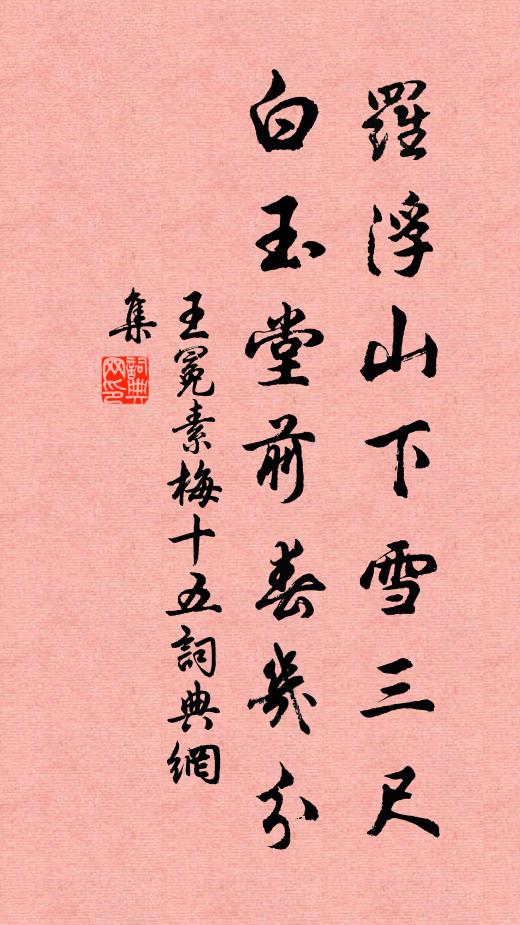 羅浮山下雪三尺
白玉堂前春幾分
王冕素梅十五詞典網
集
詞典網印